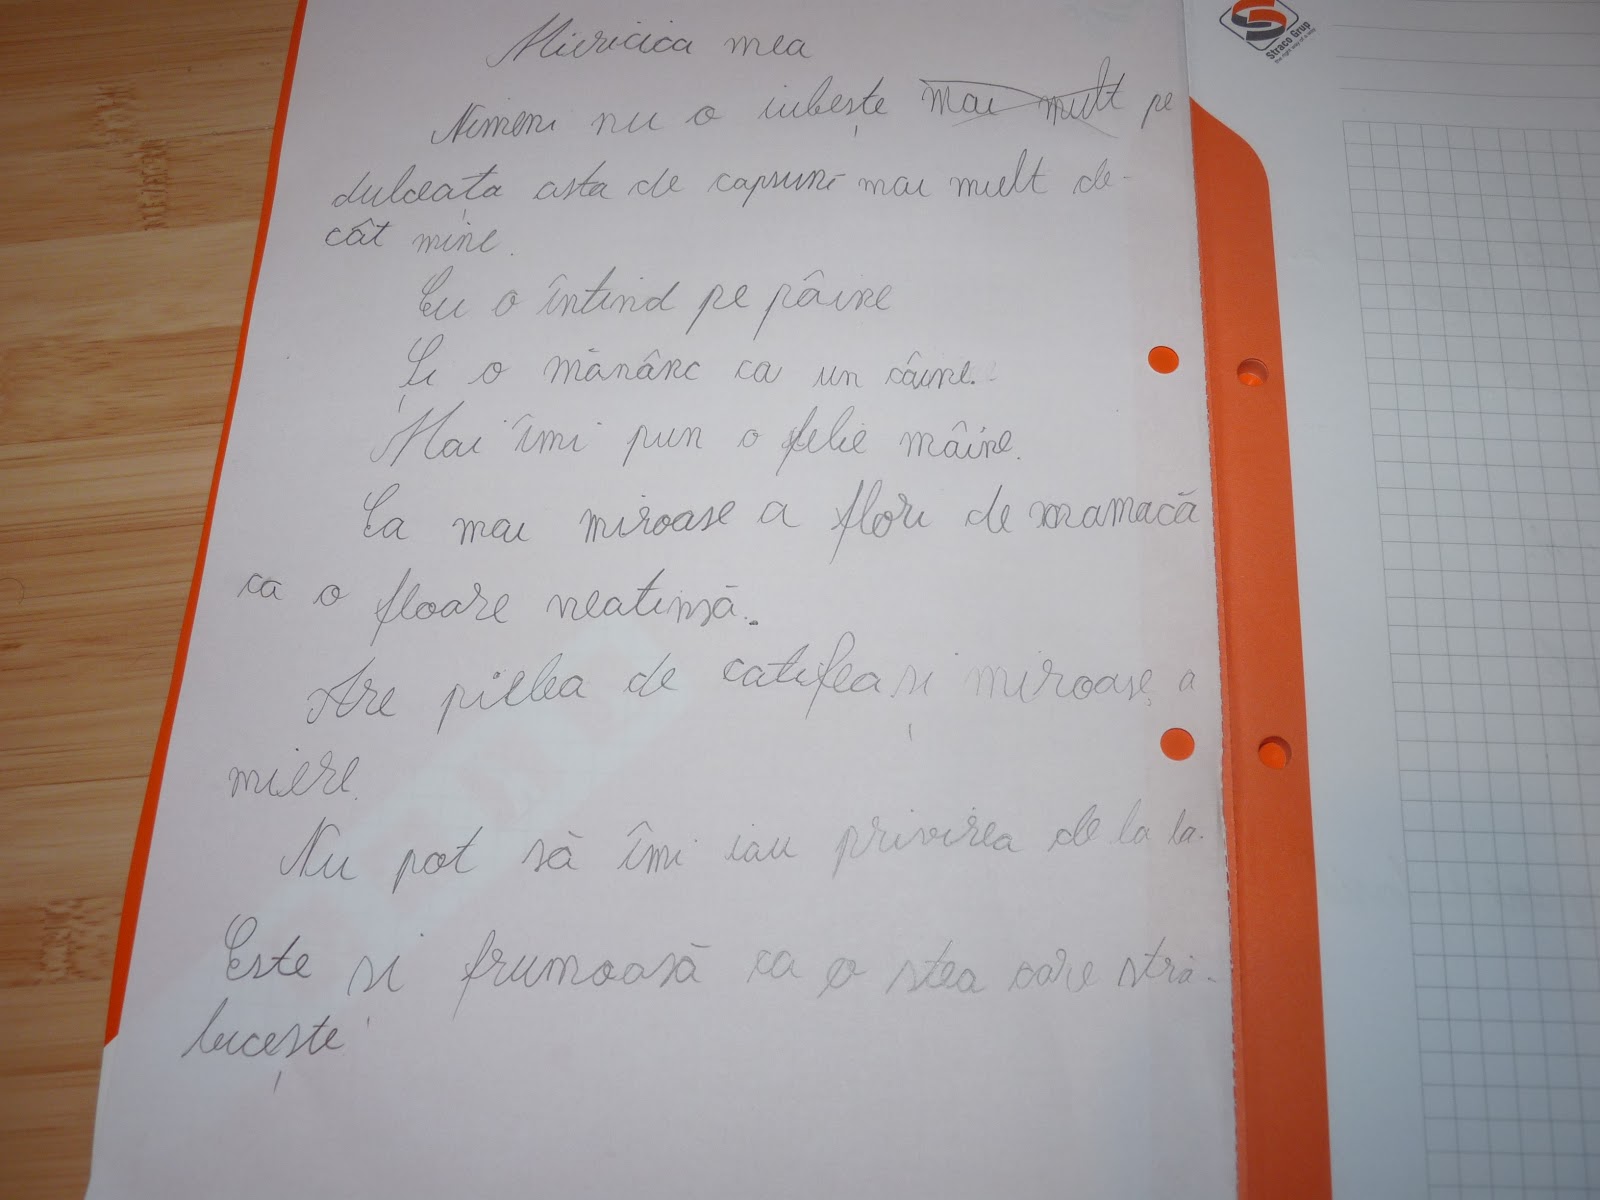 Miericica mea
Nimeni nu o iubește mai mult pe
dulceața asta de capsuni mai mult de-
cât mine.
Eu o întind pe pâine
Și o mănânc ca un câine.
Mai îmi pun o felie mâine.
Ea mai miroase a flori de mamacă
ca o floare neatinsă.
Are pielea de catifea și miroase a
miere.
Nu pot să îmi iau privirea de la ia.
Este si frumoasă ca o stea care stră-
lucește!
Straco Grup
the right way at a time